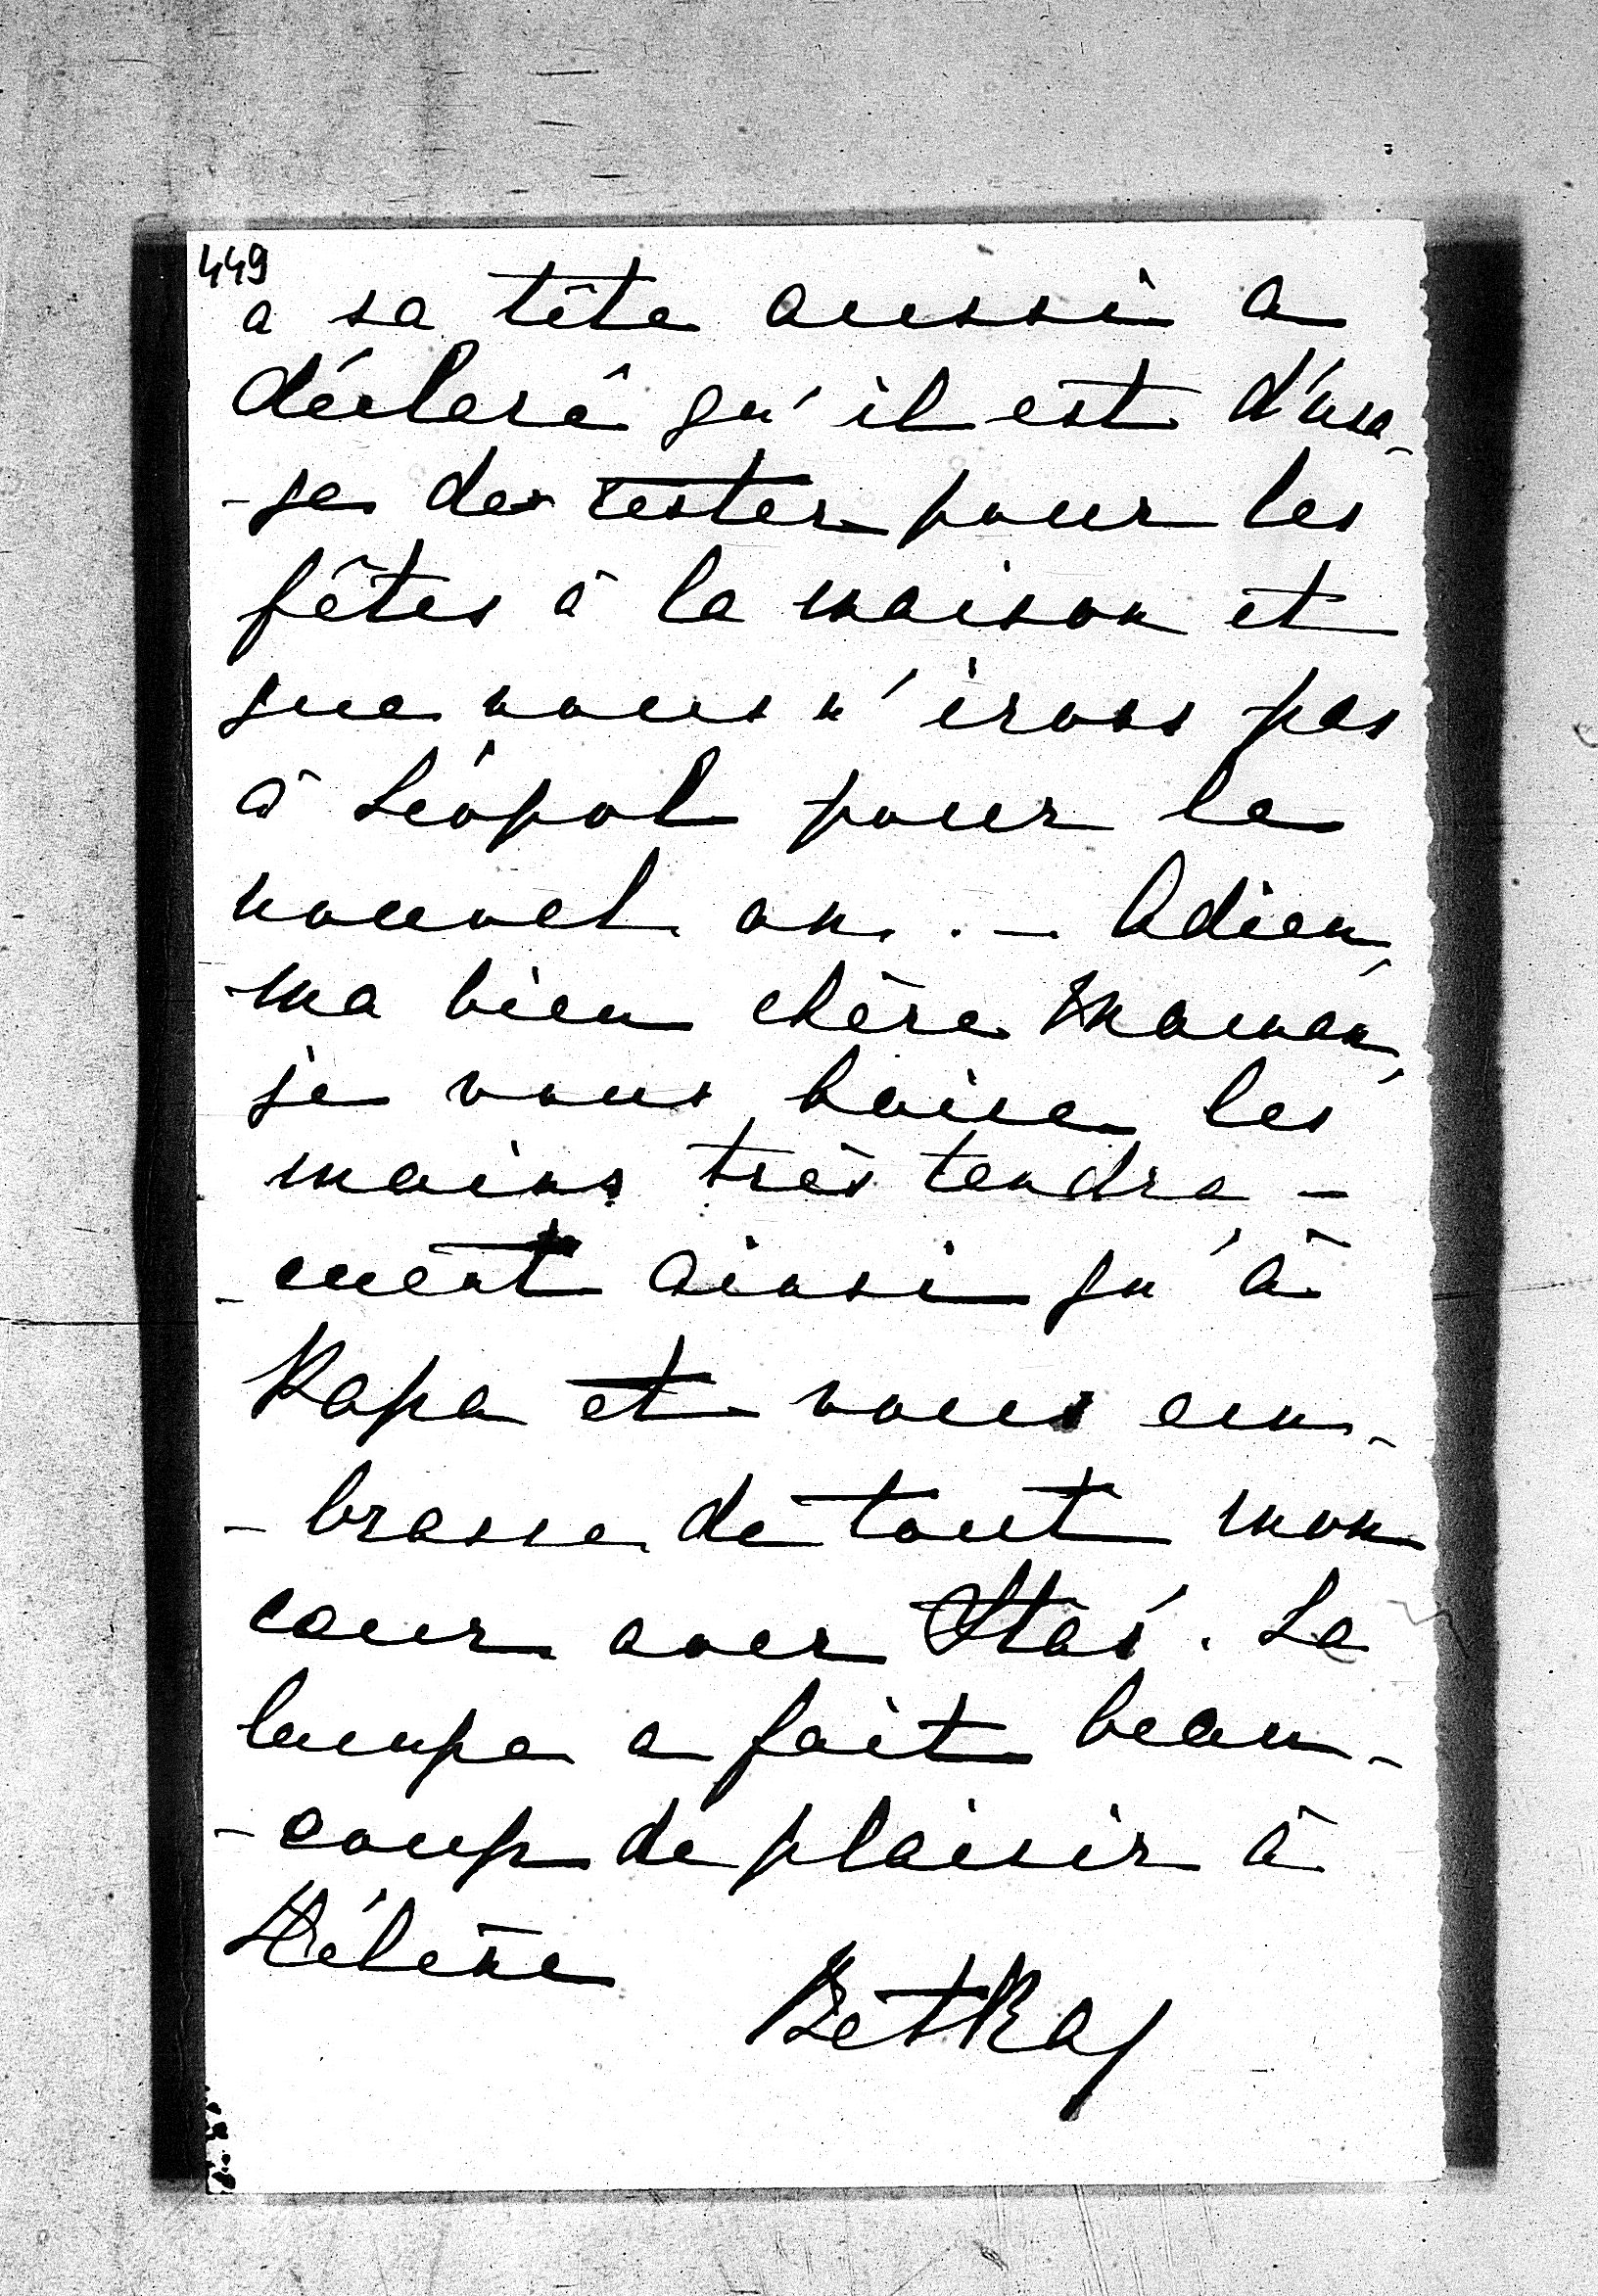 449
a sa tête aussi a
déclaré qu'il est d'usa-
-ge de rester pour les
fêtes à la maison et
que nous n'irons pas
à Léopol pour le
nouvel an. — Adieu,
ma bien chère Maman,
je vous baise les
mains très tendre-
-ment ainsi qu'à
Papa et vous em-
-brasse de tout mon
coeur avec Staś. La
lampe a fait beau-
-coup de plaisir à
Hélène
Betka